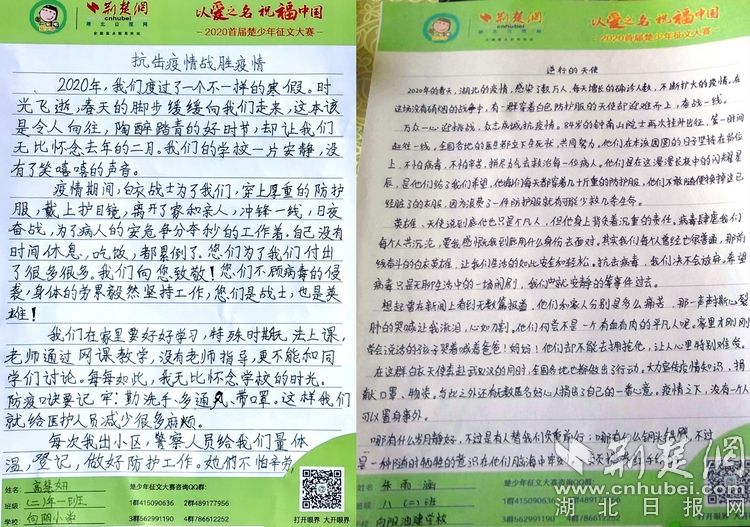 荆楚网
cnhubei
湖北日报网
以爱之名 祝福中国
2020首届楚少年征文大赛
抗击疫情战胜疫情
2020年,我们度过了一个不一样的寒假。时
光飞逝,春天的脚步缓缓向我们走来,这本该
是令人向往,陶醉踏青的好时节,却让我们
无比怀念去年的二月。我们的学校一片安静,没
有了笑嘻嘻的声音。
疫情期间,白衣战士为了我们,穿上厚重的防护
服,戴上护目镜,离开了家和亲人,冲锋一线,日夜
奋战,为了病人的安危争分夺秒的工作着。自己没有
时间休息,吃饭,都累倒了。您们为了我们付出
了很多很多。我们向您致敬!您们不顾病毒的侵
袭,身体的劳累毅然坚持工作,您们是战士,也是英
雄!
我们在家里要好好学习,特殊时期无法上课,
老师通过网课教学,没有老师指导,更不能和同
学们讨论。每每如此,我无比怀念学校的时光。
防疫口诀要记牢:勤洗手、多通风、带口罩。这样我们
就给医护人员减少很多麻烦。
每次我出小区,警察人员给我们量体
温,登记,做好防护工作。她们不怕辛劳
姓名:高慧妍
班级 (二)年一班
学校 向阳小学
楚少年征文大赛咨询QQ群:
1群415090636 2群489177956
3群562991190 4群786612252
打开眼界 大开眼界
荆楚网
cnhubei
湖北日报网
以爱之名 祝福中国
2020首届楚少年征文大赛
逆行的天使
2020年的春天,湖北的疫情,感染了数万人,每天增长的确诊人数,不断扩大的疫情,在
这场没有硝烟的战争中,有一群穿着白色防护服的天使却迎难而上,奋战一线。
万众一心迎挑战,众志成城抗疫情。84岁的钟南山院士再次挂帅出征,第一时间
赶赴一线,全国各地的医生都立下生死状,共同努力。他们在本该团圆的日子坚持在岗位
上,不怕病毒,不怕辛苦,拼尽力气去救治每一位病人。他们是在这漫漫长夜中的闪耀星
辰,是他们给了我们希望,他们每天都穿着几十斤重的防护服,他们不敢随便换掉这已
经脏了的衣服,因为浪费了一件防护服就有可能少救几条生命。
英雄、天使说到底他也只是个凡人,但他身上背负着沉重的责任。病毒肆虐我们
病毒只是天那生活中的一场闹剧,我们
想起曾在新闻上看到无数篇报道,他们和家人分别是多么痛苦,那一声声撕心裂
肺的哭喊让我流泪,心如刀割。他们何尝不是一个有血有肉的平凡人呢。家里才刚刚
学会说话的孩子哭着喊着爸爸!妈妈!他们却不能去拥抱他,让人心里特别难受。
在这群白衣天使奔赴武汉的同时,全国各地也都做出了行动。大力宣传疫情知识,捐
献口罩、物资。与此之外还有无数匿名好心人捐出了自己的一番心意。疫情之下,没有一个人
可以置身事外。
哪有什么岁月静好,不过是有人替我们负重前行;哪有什么
姓名: 朱雨涵
班级 八(二)班
学校 向阳油建学校
楚少年征文大赛咨询QQ群:
1群415090636 2群489177956
3群562991190 4群786612252
打开眼界 大开眼界
荆楚网
湖北日报网